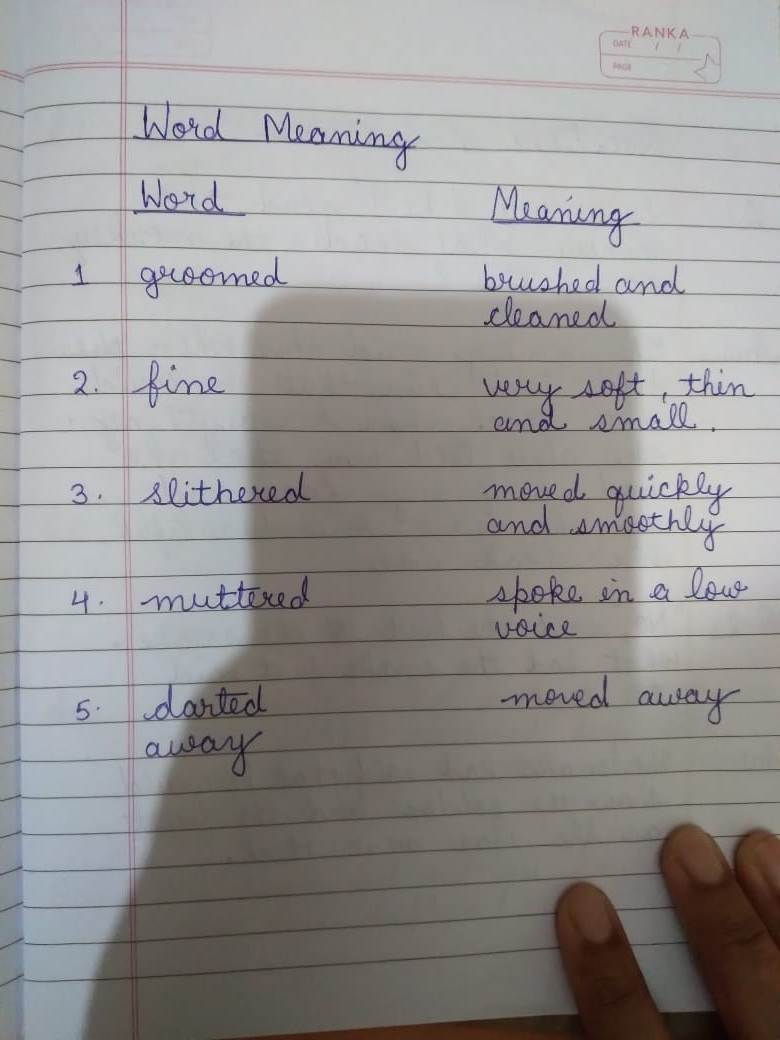 RANKA
DATE / /
PAGE
Word Meaning
Word Meaning
1 groomed brushed and
cleaned
2. fine very soft, thin
and small.
3. slithered moved quickly
and smoothly
4. muttered spoke in a low
voice
5. darted moved away
away